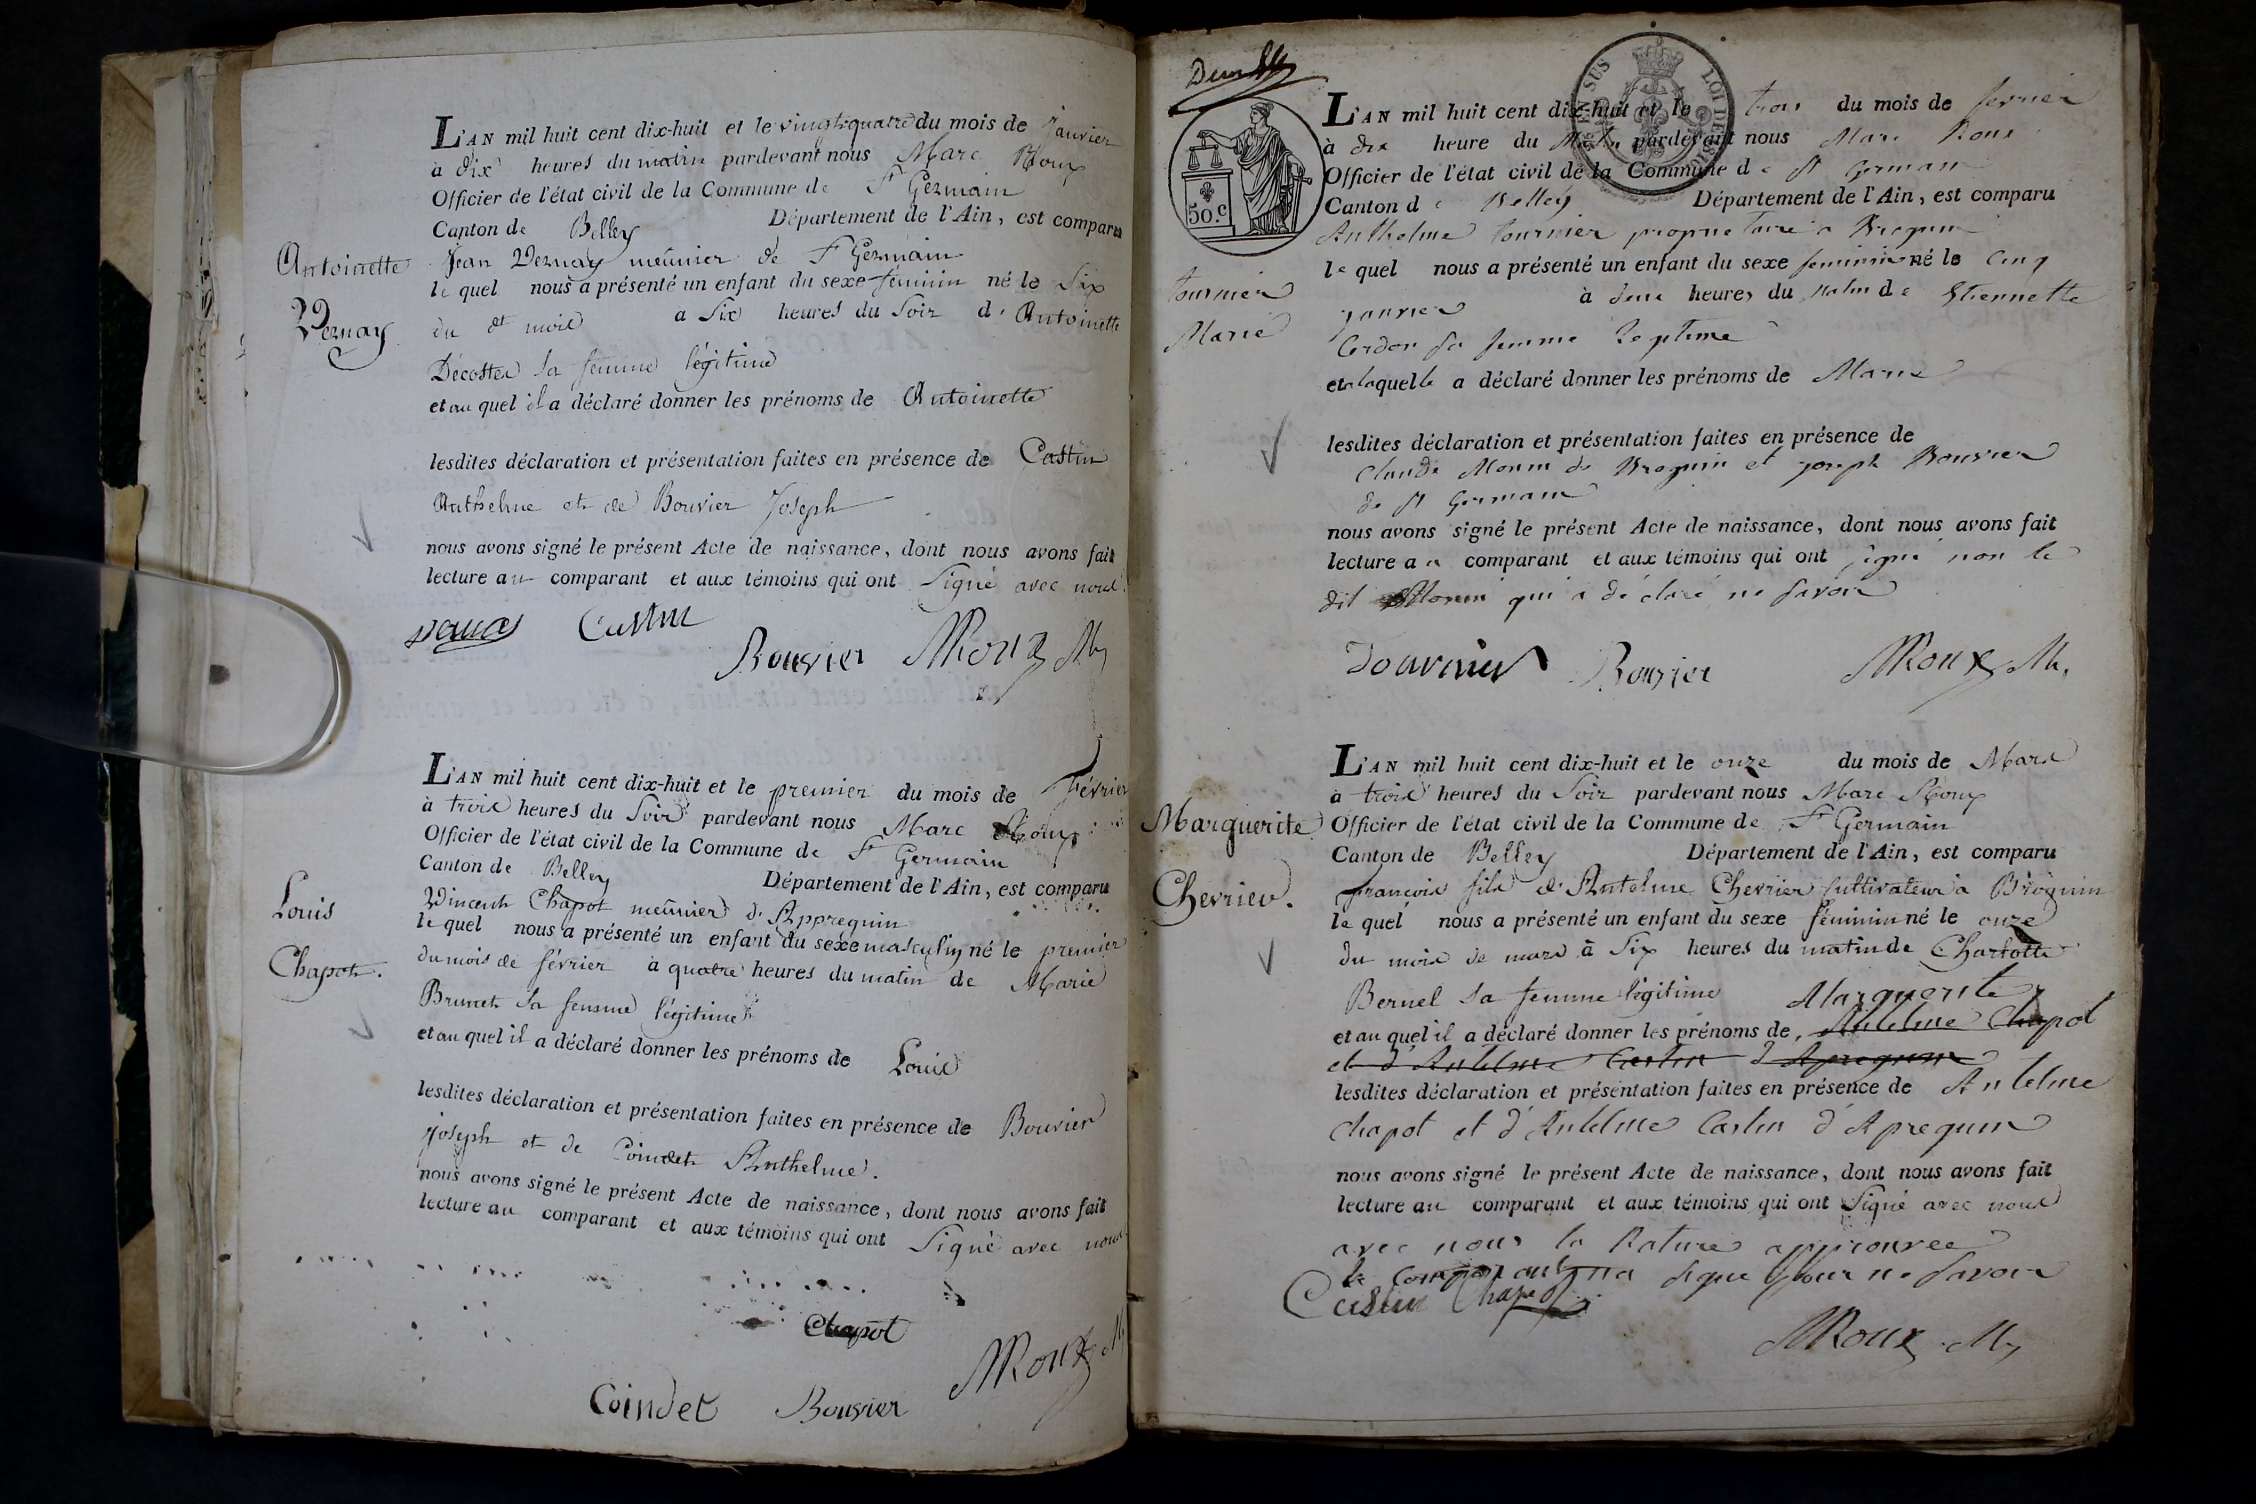 L'AN mil huit cent dix-huit et le vingtquatre du mois de Janvier
à dix heures du matin pardevant nous Marc Roux
Officier de l'état civil de la Commune de St Germain
Canton de Belley Département de l'Ain, est comparu
Antoinette
Vernay
Jean Vernay meûnier de St Germain
le quel nous a présenté un enfant du sexe féminin né le Six
du dt mois à Six heures du Soir d'Antoinette
Décoster sa femme légitime
et au quel il a déclaré donner les prénoms de Antoinette
lesdites déclaration et présentation faites en présence de Castin
Anthelme et de Bouvier Joseph
nous avons signé le présent Acte de naissance, dont nous avons fait
lecture au comparant et aux témoins qui ont Signé avec nous
Castin
Bouvier MRoux
L'AN mil huit cent dix-huit et le premier du mois de février
à trois heures du Soir pardevant nous Marc Roux
Officier de l'état civil de la Commune de St Germain
Canton de Belley Département de l'Ain, est comparu
Louis
Chapot.
Vincent Chapot meûnier d'Apprequin
le quel nous a présenté un enfant du sexe masculin né le premier
du mois de février à quatre heures du matin de Marie
Brunet sa femme légitime
et au quel il a déclaré donner les prénoms de Louis
lesdites déclaration et présentation faites en présence de Bouvier
Joseph et de Coindet Anthelme.
nous avons signé le présent Acte de naissance, dont nous avons fait
lecture au comparant et aux témoins qui ont Signé avec nous
Chapot
MRoux
Coindet Bouvier
EN SUS LOI DE
50.c
L'AN mil huit cent dix-huit et le trois du mois de fevrier
à dix heure du Matin pardevant nous Marc Roux
Officier de l'état civil de la Commune de St Germain
Canton de Belley Département de l'Ain, est comparu
tournier
Marie
Anthelme tournier proprietaire a Brognin
le quel nous a présenté un enfant du sexe feminin né le cinq
janvier à deux heures du matin de Etiennette
Cerdon sa femme legitime
et a laquelle a déclaré donner les prénoms de Marie
lesdites déclaration et présentation faites en présence de
Claude Monin de Brognin et joseph Bouvier
de St Germain
nous avons signé le présent Acte de naissance, dont nous avons fait
lecture au comparant et aux témoins qui ont signé non le
dit Monin qui a déclaré ne savoir
Tournier Bouvier MRoux M.
L'AN mil huit cent dix-huit et le onze du mois de Mars
à trois heures du Soir pardevant nous Marc Roux
Officier de l'état civil de la Commune de St Germain
Canton de Belley Département de l'Ain, est comparu
Marguerite
Chevrier.
françois fils d'Antelme Chevrier Cultivateur à Brognin
le quel nous a présenté un enfant du sexe féminin né le onze
du mois de mars à Six heures du matin de Charlotte
Bernel sa femme légitime Marguerite
et au quel il a déclaré donner les prénoms de Antelme Chapot
et d'Antelme Castin d'Aprequin
lesdites déclaration et présentation faites en présence de Antelme
Chapot et d'Antelme Castin d'Aprequin
nous avons signé le présent Acte de naissance, dont nous avons fait
lecture au comparant et aux témoins qui ont Signé avec nous
avec nous la Rature approuvee
le Comparant na signe pour ne savoir
Castin Chapot
MRoux